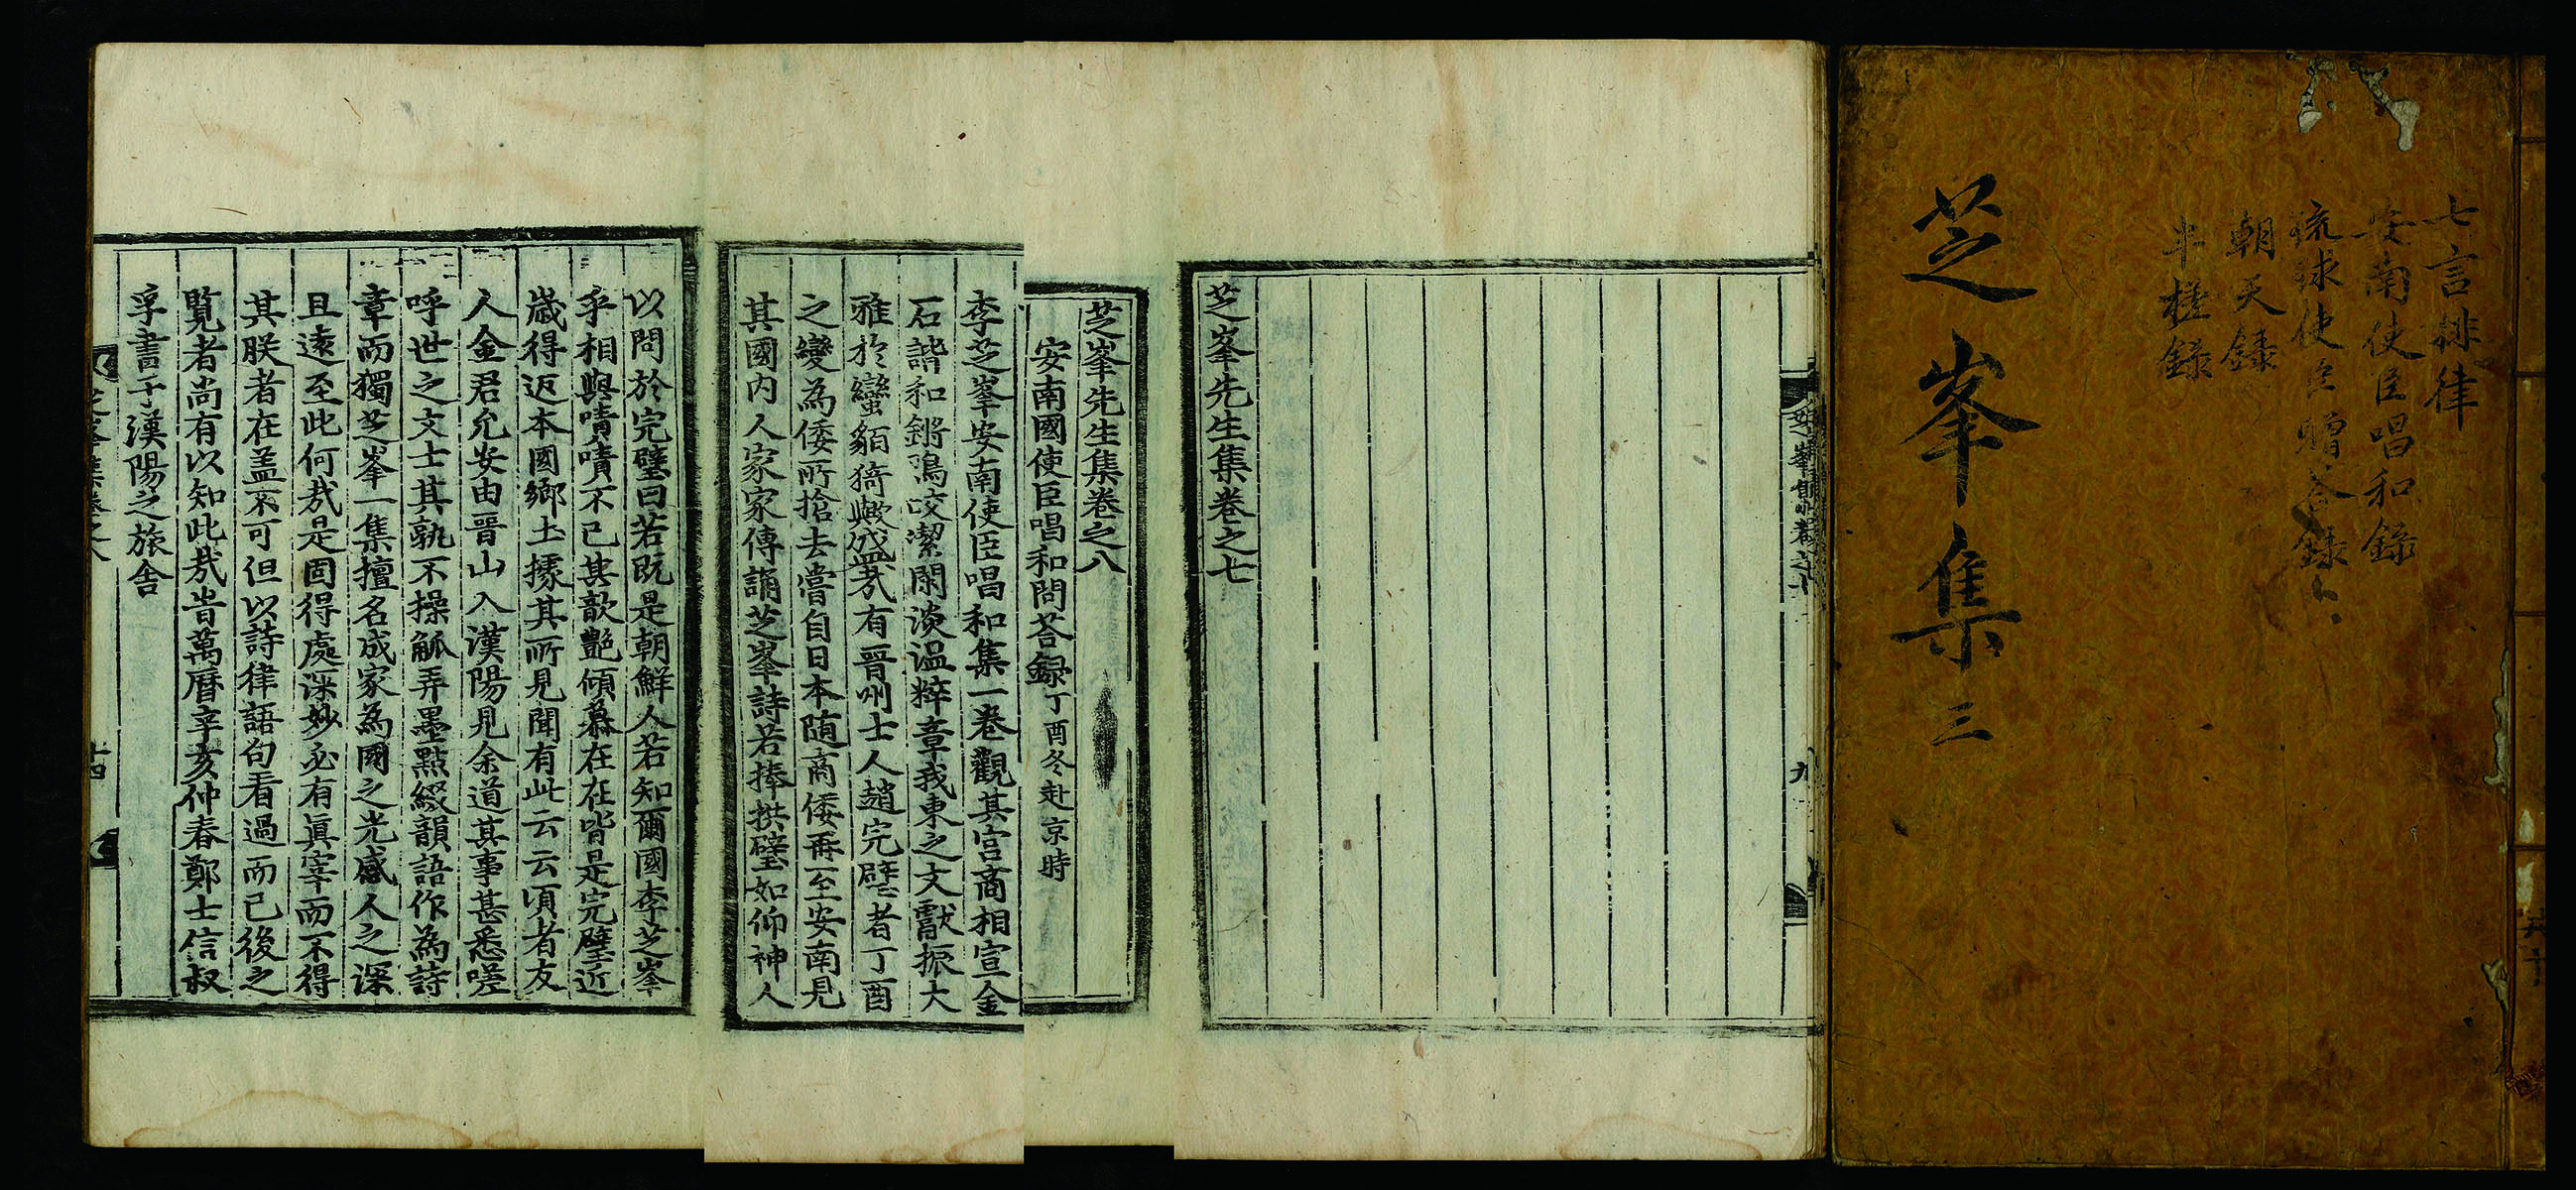 七言排律
安南使臣唱和錄
琉球使臣贈答錄
朝天錄
半槎錄
芝峯集 三
九
芝峯先生集卷之七
芝峯先生集卷之八
安南國使臣唱和問荅録 丁酉冬赴京時
李芝峯安南使臣唱和集一卷觀其宮商相宣金
石諧和鏘鳴咬潔閑淡温粹章我東之文獻振大
雅於蠻貊猗歟盛㢤有晋州士人趙完璧者丁酉
之變為倭所搶去嘗自日本随商倭再至安南見
其國内人家家傳誦芝峯詩若捧拱璧如仰神人
以問於完璧曰若旣是朝鮮人若知爾國李芝峯
乎相與嘖嘖不已其歆艶傾慕在在皆是完璧近
歳得返本國鄉土㨿其所見聞有此云云頃者友
人金君允安由晋山入漢陽見余道其事甚悉嗟
呼世之文士其孰不操觚弄墨點綴韻語作為詩
章而獨芝峯一集擅名成家為國之光感人之深
且遠至此何㢤是固得處深妙必有眞宰而不得
其朕者在盖不可但以詩律語句看過而已後之
覧者尚有以知此㢤旹萬曆辛亥仲春鄭士信叔
孚書于漢陽之旅舍
十四